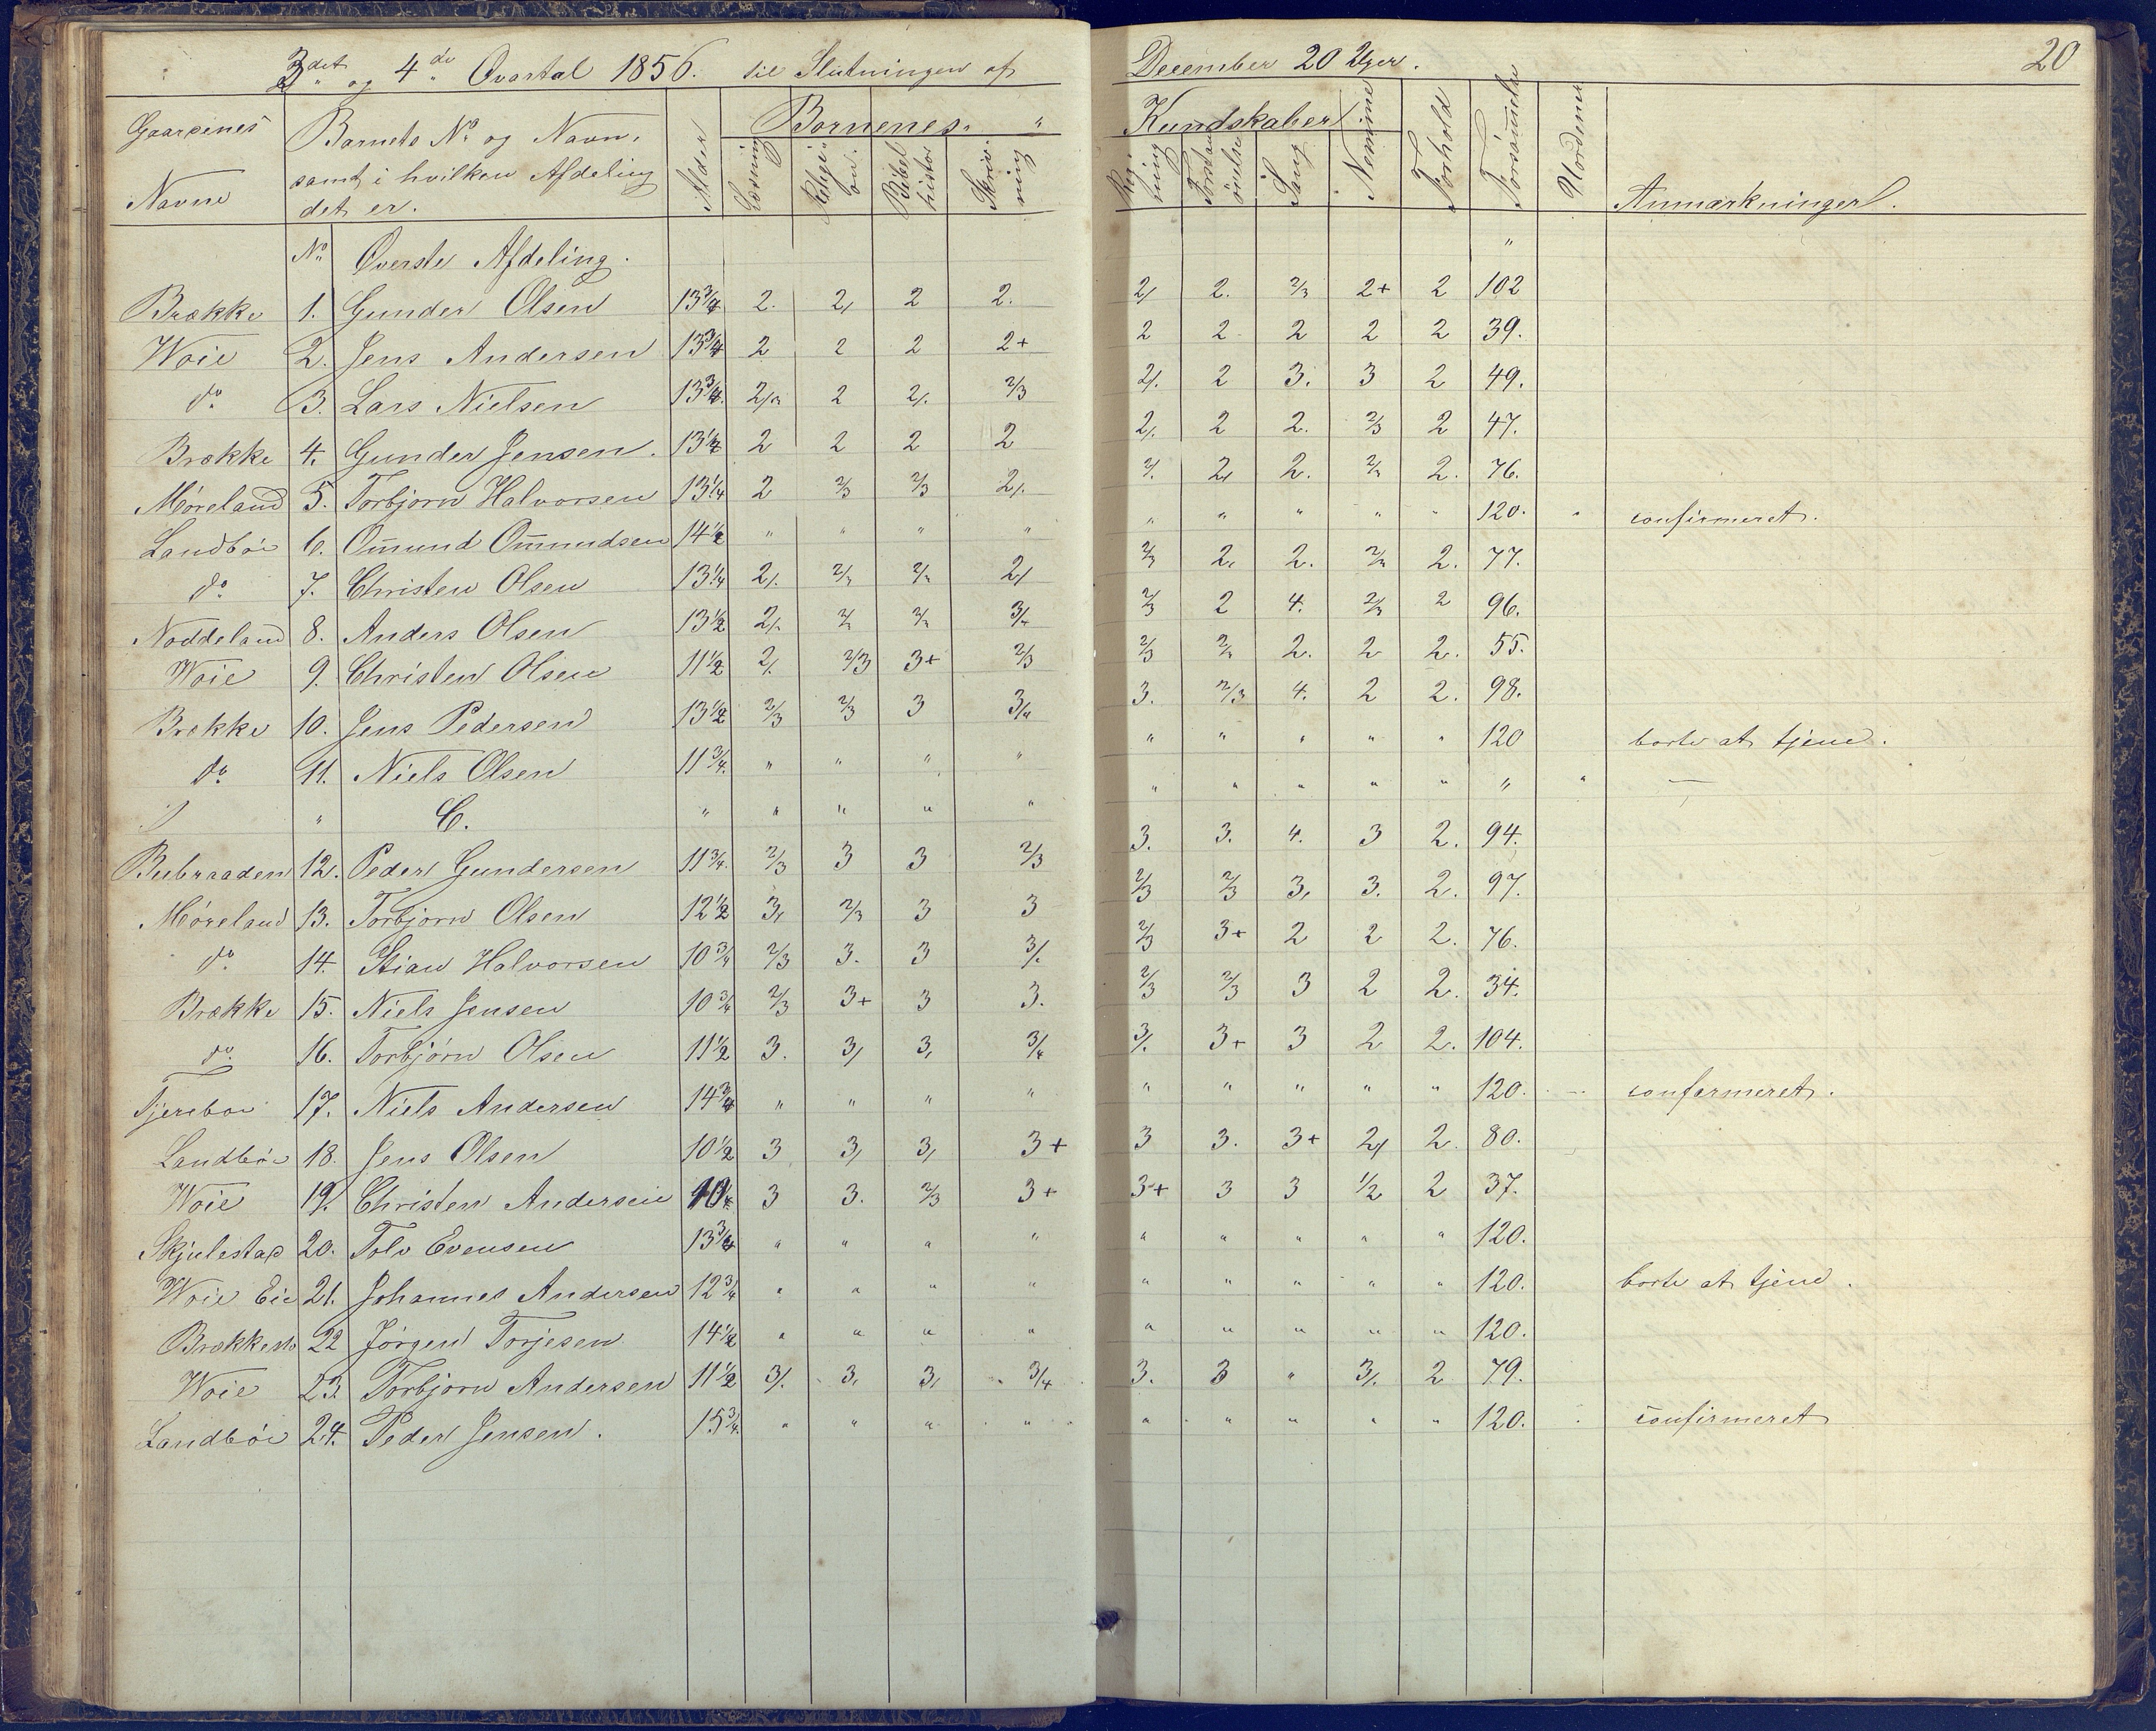 3det og 4de Qvartal 1856. til Slutningen af December 20 Uger. 20
Gaardenes Navne
Barnets No og Navn, samt i hvilken Afdeling det er.
Alder
Børnenes Kundskaber
Læsning
Religion.
Bibelhistor
Skrivning
Regning
Sang
Nemme
Forhold
Forsømmelse
Uordener
Anmærkninger.
No Øverste Afdeling. "
Brække 1. Gunder Olsen 13 3/4 2. 2/ 2 2. 2/ 2. 2/3 2+ 2 102
Woie 2. Jens Andersen 13 3/4 2 2 2 2+ 2 2 2 2 2 39.
do 3. Lars Nielsen 13 3/4 2/. 2 2/. 2/3 2/. 2 3. 3 2 49.
Brække 4. Gunder Jensen. 13 1/2 2 2 2 2 2/. 2 2. 2/3 2 47.
Møreland 5. Torbjørn Halvorsen 13 1/4 2 2/3 2/3 2/. 2/. 2/ 2. 2/3 2. 76.
Landbøe 6. Omund Omundsen 14 1/2 " " " " " " " " " 120. " confirmeret.
do 7. Christen Olsen 13 1/4 2/. 2/3 2/3 2/ 2/3 2, 2. 2/3 2. 77.
Noddeland 8. Anders Olsen 13 1/2 2/. 2/3 2/3 3/4 2/3 2 4. 2/3 2 96.
Woie 9. Christen Olsen 11 1/2 2/. 2/3 3+ 2/3 2/3 2/3 2. 2 2. 55.
Brække 10. Jens Pedersen 13 1/2 2/3 2/3 3 3/4 3. 2/3 4. 2 2. 98.
do 11. Niels Olsen 11 3/4. " " " " " " " " " 120 borte at tjene.
" " C. " " " " " " " " " " " "
Beebraaden 12. Peder Gundersen 11 3/4. 2/3 3 3 2/3 3. 3. 4. 3 2. 94.
Møreland 13. Torbjørn Olsen 12 1/2 3, 2/3 3 3 2/3 2/3 3, 3. 2. 97.
do 14. Stian Halvorsen 10 3/4 2/3 3. 3 3/. 2/3 3+ 2 2 2. 76.
Brække 15. Niels Jensen 10 3/4 2/3 3+ 3 3. 2/3 2/3 3 2 2. 34.
do. 16. Torbjørn Olsen 11 1/2 3. 3/ 3, 3/4 3/. 3+ 3 2 2. 104.
17. Niels Andersen 14 3/4 " " " " " " " " " 120. confermeret.
Landbøe 18. Jens Olsen 10 1/2 3 3/ 3, 3+ 3 3. 3+ 2/ 2. 80.
Woie 19. Christen Andersen 3 3. 2/3 3+ 3+ 3 3 1/2 2 37.
Skjulestad 20. Tolv Evensen 13 3/4 " " " " " " " " " 120.
Woie Eie 21. Johannes Andersen 12 3/4 " " " " " " " " " 120. borte at tjene.
22 Jørgen Torjesen 14 1/2 " " " " " " " " " 120.
Woie 23. Torbjørn Andersen 11 1/2 3/. 3, 3, 3/4 3. 3 " 3/. 2 79.
Landbøe 24. Peder Jensen. 15 3/4. " " " " " " " " " 120. confirmeret